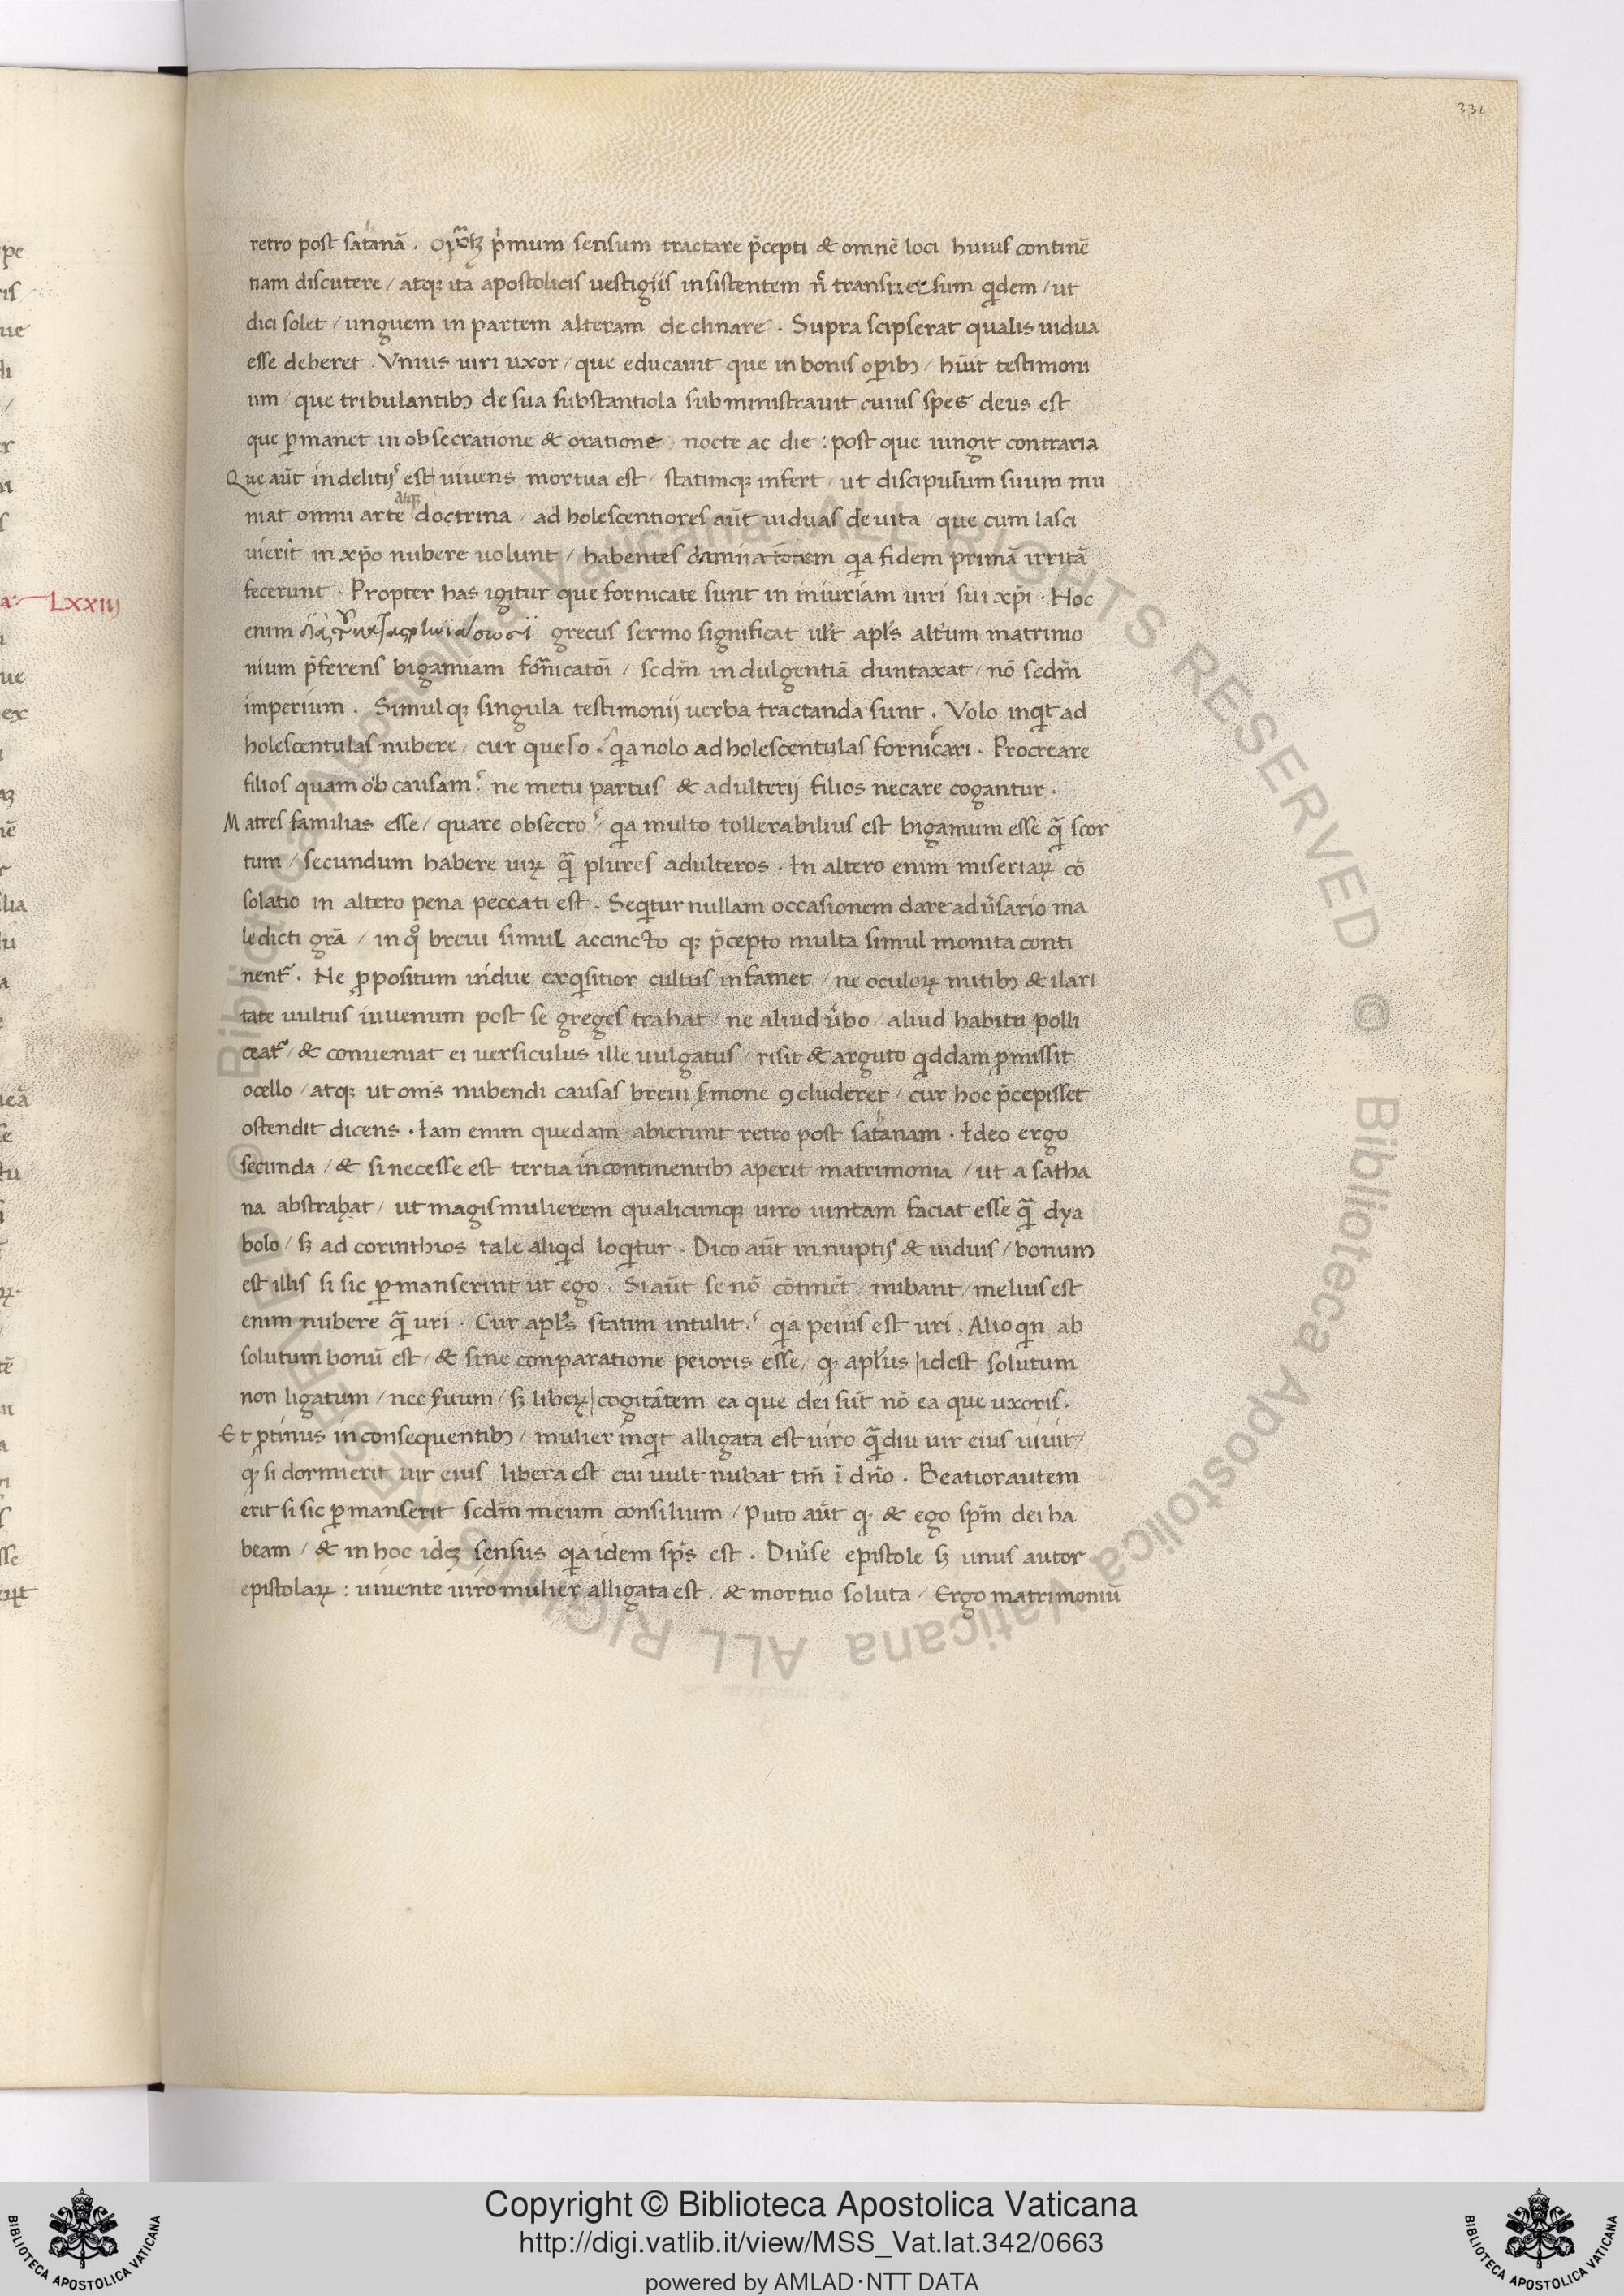 331
retro post satanā. Oportꝫ p̓mum sensum tractare p̄cepti & omnē loci huius continē
tiam discutere / atqꝫ ita apostolicis uestigiis insistentem ñ transuersum qdem / ut
dici solet / unguem in partem alteram declinare. Supra scipserat qualis uidua
esse deberet. Vnius uiri uxor / que educauit que in bonis opibꝫ / hūit testimoni
um / que tribulantibꝫ de sua substantiola subministrauit cuius spes deus est
que ꝑmanet in obsecratione & oratione nocte ac die : post que iungit contraria
Que aūt in delitijs est / uiuens mortua est / statimqꝫ infert / ut discipulum suum mu
niat omni arte atqꝫ doctrina / adholescentiores aūt uiduas deuita / que cum lasci
uierit in xp̄o nubere uolunt / habentes damnatōem qa fidem primā irritā
fecerunt. Propter has igitur que fornicate sunt in iniuriam uiri sui xp̄i. Hoc
enim grecus sermo significat ult apls altum matrimo
nium p̄ferens bigamiam fornicatōi / scdm indulgentiā duntaxat / nō scdm
imperium. Simulqꝫ singula testimonij uerba tractanda sunt. Volo inqt ad
holescentulas nubere / cur queso. qa nolo adholescentulas fornicari. Procreare
filios quam ob causam. ne metu partus & adulterij filios necare cogantur.
Matres familias esse / quare obsecro / qa multo tollerabilius est bigamum esse q̄ scor
tum / secundum habere uiꝝ q̄ plures adulteros. In altero enim miseriaꝝ cō
solatio in altero pena peccati est. Seqtur nullam occasionem dare adu̓sario ma
ledicti grā / in qo breui simul accinctoqꝫ p̄cepto multa simul monita conti
nent. Ne ꝓpositum uidue exqsitior cultus infamet / ne oculoꝝ nutibꝫ & ilari
tate uultus iuuenum post se greges trahat / ne aliud u̓bo / aliud habitu polli
ceat / & conueniat ei uersiculus ille uulgatus / risit & arguto qddam ꝓmissit
ocello / atqꝫ ut om̄s nubendi causas breui smone ꝯcluderet / cur hoc p̄cepisset
ostendit dicens. Iam enim quedam abierunt retro post satanam. Ideo ergo
secunda / & si necesse est tertia incontinentibꝫ aperit matrimonia / ut a satha
na abstrahat / ut magis mulierem qualicunqꝫ uiro uintam faciat esse q̄ dya
bolo / sꝫ ad corinthios tale aliqd loqtur. Dico aūt innuptis & uiduis / bonum
est illis si sic ꝑmanserint ut ego. Si aūt se nō cōtinēt / nubant / melius est
enim nubere q̄ uri. Cur apls statim intulit. qa peius est uri. Alioqn ab
solutum bonū est / & sine conparatione peioris esse / q apl̄us / idest solutum
non ligatum / nec suum / sꝫ libeꝝ / cogitātem ea que dei sūt nō ea que uxoris.
Et ꝓtinus in consequentibꝫ / mulier inqt alligata est uiro q̄diu uir eius uiuit /
q si dormierit uir eius libera est cui uult nubat tm̄ ī dn̄o. Beatior autem
erit si sic ꝑmanserit scdm meum consilium / puto aūt q & ego spm̄ dei ha
beam / & in hoc idꝫ sensus qa idem sps est. Diu̓se epistole sꝫ unus autor
epistolaꝝ : uiuente uiro mulier alligata est / & mortuo soluta / Ergo matrimoniū
LXXIIJ
© Biblioteca Apostolica Vaticana ALL RIGHTS RESERVED © Biblioteca Apostolica Vaticana ALL RIGHTS RESERVED
Copyright © Biblioteca Apostolica Vaticana
http://digi.vatlib.it/view/MSS_Vat.lat.342/0663
powered by AMLAD·NTT DATA
BIBLIOTECA APOSTOLICA VATICANA
BIBLIOTECA APOSTOLICA VATICANA